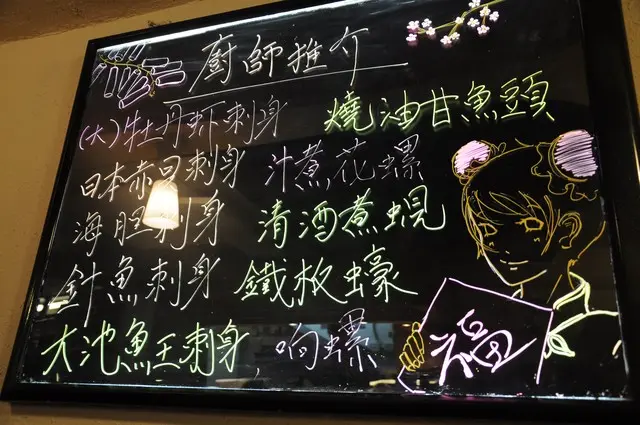 廚師推介
(大)牡丹虾刺身 燒油甘魚頭
日本赤貝刺身 汁煮花螺
海胆刺身 清酒煮蜆
針魚刺身 鐵板蠔
大池魚王刺身, 响螺
福